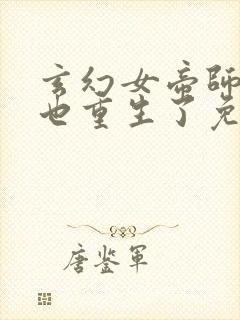 玄幻女帝師
也重生了免
唐鉴军